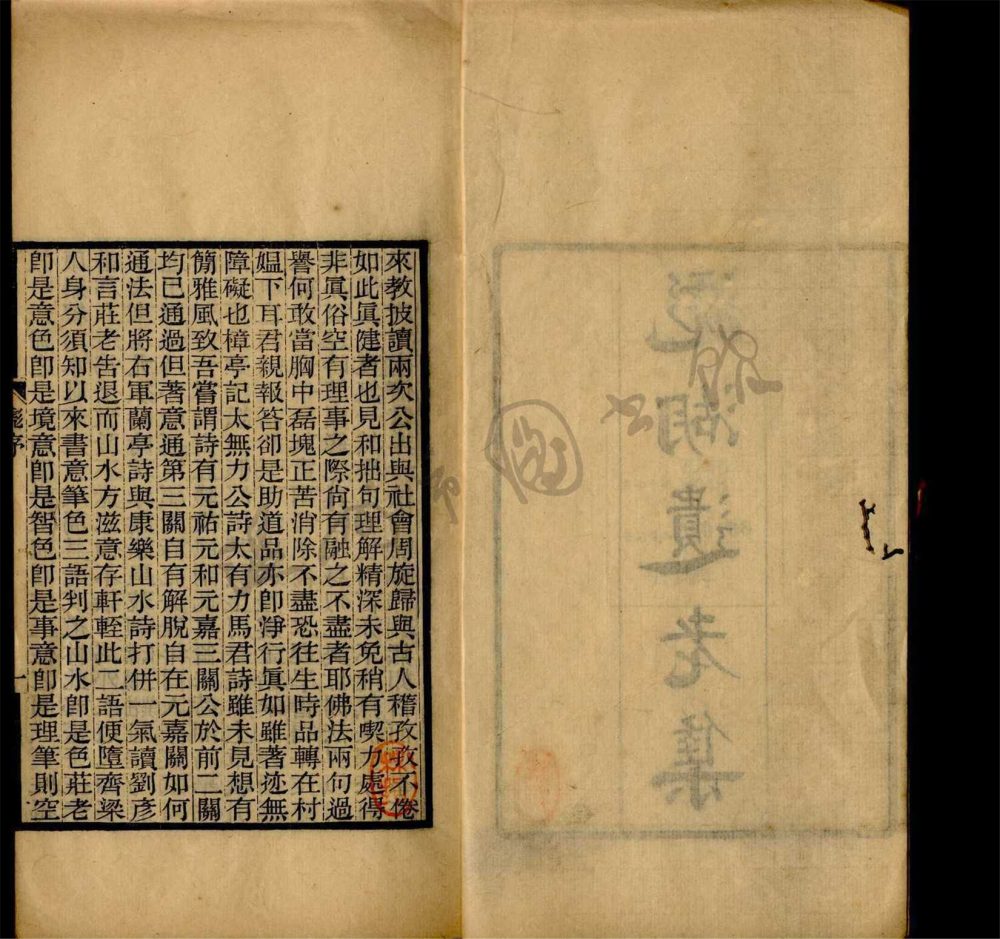 來教披讀兩次公出與社會周旋歸與古人稽孜孜不倦
如此眞健者也見和拙句理解精深未免稍有喫力處得
非眞俗空有理事之際尙有融之不盡者耶佛法兩句過
譽何敢當胸中磊塊正苦消除不盡恐往生時品轉在村
媼下耳君親報答卻是助道品亦卽淨行眞如雖著迹無
障礙也樟亭記太無力公詩太有力馬君詩雖未見想有
簡雅風致吾嘗謂詩有元祐元和元嘉三關公於前二關
均已通過但著意通第三關自有解脫自在元嘉關如何
通法但將右軍蘭亭詩與康樂山水詩打併一氣讀劉彥
和言莊老告退而山水方滋意存軒輊此二語便墮齊梁
人身分須知以來書意筆色三語判之山水卽是色莊老
卽是意色卽是境意卽是智色卽是事意卽是理筆則空
序
一
湖遺老集